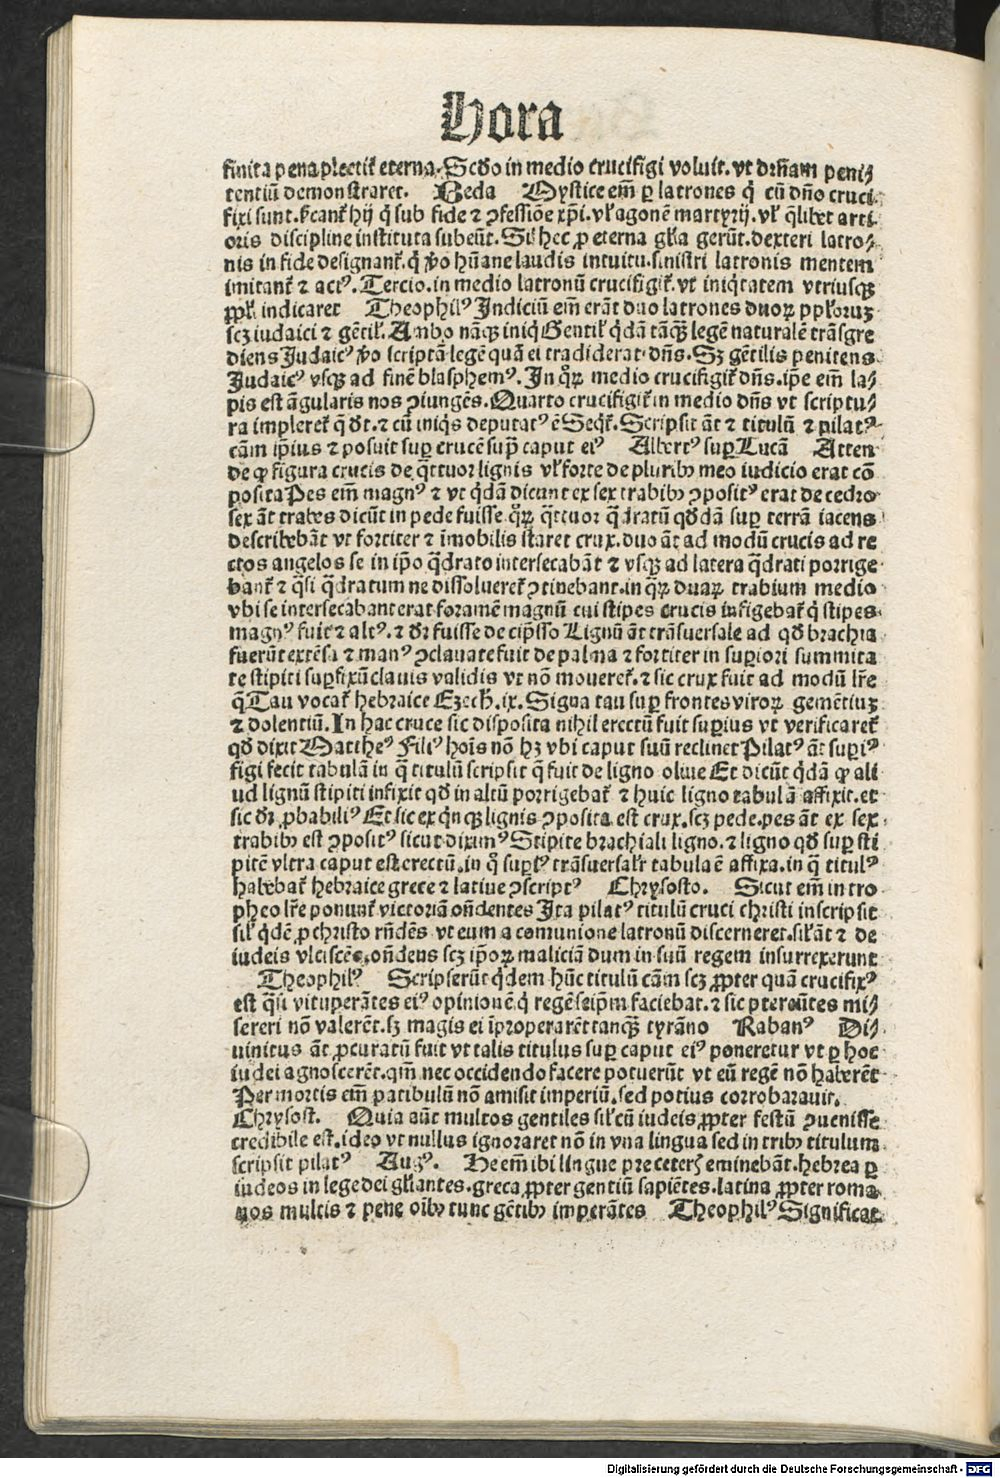 Hora
finita pena plectit᷑ eterna. Scḋo in medio crucifigi voluit. vt dr̄nam peni⸗
tentiū demonstraret. Beda Mystice em̄ ꝑ latrones q̇ cū dn̄o cruci.
fixi sunt. st̓cant᷑ hij q̇ sub fide ⁊ ꝯfessiōe xp̄i. vl̓ agonē martyrij. vl̓ q̄libet arti.
oris discipline instituta subeūt. Si hec ꝓ eterna gl̓ia gerūt. dexteri latro⸗
nis in fide designant᷑. q̇ v̊o hūane laudis intuitu. sinistri latronis mentem
imitant᷑ ⁊ actꝰ. Tercio. in medio latronū crucifigit᷑. vt iniq̇tatem vtriusqꝫ
ppl̓i indicaret Theophilꝰ Indiciū em̄ erāt duo latrones duoꝝ ppl̓oruꝫ
scꝫ iudaici ⁊ gētil̓. Ambo nāqꝫ iniq̇ Gentil̓ q̇dā tāqꝫ̄ legē naturalē trāsgre
diens Judaicꝰ v̊o scriptā legē quā ei tradiderat dn̄s. Sꝫ gētilis penitens
Judaicꝰ vsqꝫ ad finē blasphemꝰ. In q̊ꝝ medio crucifigit᷑ dn̄s. ip̄e em̄ la⸗
pis est āgularis nos ꝯiungēs. Quarto crucifigit᷑ in medio dn̄s vt scriptu⸗
ra impleret᷑ q̄ d̄t. ⁊ cū iniq̇s deputatꝰ ē Seq̇t᷑. Scripsit āt ⁊ titulū ⁊ pilatꝰ
cām ip̄ius ⁊ posuit suꝑ crucē sup̄ caput eiꝰ Albertꝰ suꝑ Lucā Atten
de ꝙ figura crucis de q̄ttuor lignis vl̓ forte de pluribꝰ meo iudicio erat cō
posita Pes em̄ magnꝰ ⁊ vt q̇dā dicunt ex sex trabibꝰ ꝯpositꝰ erat de cedro
sex āt trabes dicūt in pede fuisse q̊ꝝ q̄ttuor q̄dratū qḋdā suꝑ terrā iacens
describebāt vt fortiter ⁊ īmobilis staret crux. duo āt ad modū crucis ad re
ctos angelos se in ip̄o q̄drato intersecabāt ⁊ vsqꝫ ad latera q̄drati porrige
bant᷑ ⁊ q̄si q̄dratum ne dissolueret᷑ ꝯtinebant. in q̄ꝝ duaꝝ trabium medio
vbi se intersecabant erat foramē magnū cui stipes crucis infigebat᷑ q̇ stipes
magnꝰ fuit ⁊ altꝰ. ⁊ dr̄ fuisse de cip̄sso Lignū āt trāsuersale ad qḋ brachia
fuerūt extēsa ⁊ manꝰ ꝯclauate fuit de palma ⁊ fortiter in suꝑiori summita
te stipiti suꝑfixū clauis validis vt nō moueret᷑. ⁊ sic crux fuit ad modū lr̄e
q̄ Tau vocat᷑ hebraice Ezech̄. ix. Signa tau suꝑ frontes viroꝝ gemētiuꝫ
⁊ dolentiū. In hac cruce sic disposita nihil erectū fuit suꝑius vt verificaret᷑
qḋ dixit Mattheꝰ Filiꝰ hoīs nō hꝫ vbi caput suū reclinet Pilatꝰ āt suꝑiꝰ
figi fecit tabulā in q̄ titulū scripsit q̄ fuit de ligno oliue Et dicūt q̇dā ꝙ ali
ud lignū stipiti infixit qḋ in altū porrigebat᷑ ⁊ huic ligno tabulā affixit. et
sic dr̄ ꝓbabiliꝰ Et sic ex q̇nqꝫ lignis ꝯposita est crux. scꝫ pede. pes āt ex sex
trabibꝰ est ꝯpositꝰ sicut diximꝰ Stipite brachiali ligno. ⁊ ligno qḋ suꝑ sti
pitē vltra caput est erectū. in q̊ suꝑꝰ trāsuersalr̄ tabula ē affixa. in q̄ titulꝰ
habebat᷑ hebraice grece ⁊ latine ꝯscriptꝰ Chrysosto. Sicut em̄ in tro
pheo lr̄e ponunt᷑ victoriā on̄dentes Ita pilatꝰ titulū cruci christi inscripsit
sil̓ q̇dē ꝓ christo rn̄dēs vt eum a comunione latronū discerneret. sil̓ āt ⁊ de
iudeis vlciscēs. on̄dens scꝫ ip̄oꝝ maliciā dum in suū regem insurrexerunt
Theophilꝰ Scripserūt q̇dem hūc titulū cām scꝫ ꝓpter quā crucifixꝰ
est q̄si vituperātes eiꝰ opinionē q̇ regē seip̄m faciebat. ⁊ sic ptereūtes mi⸗
sereri nō valerēt. sꝫ magis ei īproperarēt tanqꝫ̄ tyrāno Rabanꝰ Di⸗
uinitus āt ꝓcuratū fuit vt talis titulus suꝑ caput eiꝰ poneretur vt ꝑ hoc
iudei agnoscerēt. qm̄ nec occidendo facere potuerūt vt eū regē nō haberēt
Per mortis em̄ patibulū nō amisit imperiū. sed potius corrobarauit.
Chrysost. Quia aūt multos gentiles sil̓ cū iudeis ꝓpter festū ꝯuenisse
credibile est. ideo vt nullus ignoraret nō in vna lingua sed in tribꝰ titulum
scripsit pilatꝰ Augꝰ. He em̄ ibi lingue pre ceteris eminebāt. hebrea ꝑ
iudeos in lege dei gl̓iantes. greca ꝓpter gentiū sapiētes. latina ꝓpter roma
nos multis ⁊ pene oībꝰ tunc gētibꝰ imperātes Theophilꝰ Significat
Digitalisierung gefördert durch die Deutsche Forschungsgemeinschaft - DFG